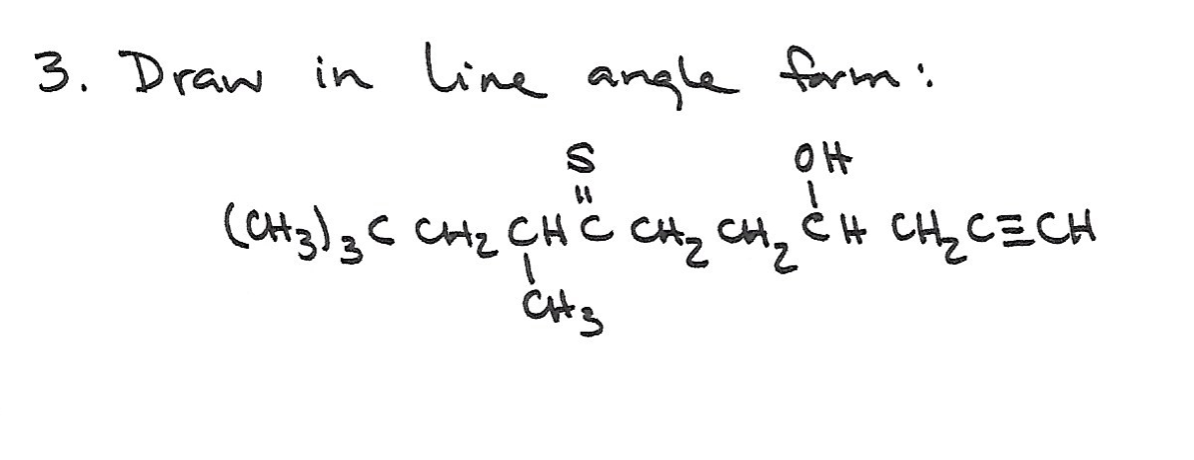 3. Draw in line angle form:
S OH
(CH₃)₃C CH₂ CH C CH₂ CH₂ CH CH₂ C≡CH
CH₃